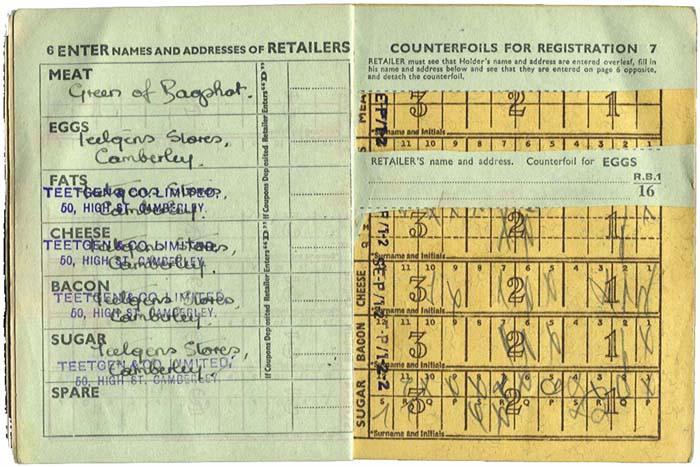 6 ENTER NAMES AND ADDRESSES OF RETAILERS
MEAT
Green of Bagshot.
EGGS
Teetgens Stores,
Camberley.
FATS
TEETGEN & CO. LIMITED,
50, HIGH ST. CAMBERLEY.
Camberley.
CHEESE
TEETGEN & CO. LIMITED,
50, HIGH ST. CAMBERLEY.
Camberley.
BACON
Teetgens Stores,
TEETGEN & CO. LIMITED,
50, HIGH ST. CAMBERLEY.
Camberley.
SUGAR
Teetgens Stores,
TEETGEN & CO. LIMITED,
50, HIGH ST. CAMBERLEY.
Camberley.
SPARE
If Coupons Deposited Retailer Enters "D"
If Coupons Deposited Retailer Enters "D"
If Coupons Deposited Retailer Enters "D"
COUNTERFOILS FOR REGISTRATION 7
RETAILER must see that Holder's name and address are entered overleaf, fill in
his name and address below and see that they are entered on page 6 opposite,
and detach the counterfoil.
MEAT
3 2 1
Surname and Initials
RETAILER'S name and address. Counterfoil for EGGS
R.B.1
16
3 2 1
*Surname and Initials
CHEESE
11 10 9 8 7 6 5 4 3 2 1
3 2 1
*Surname and Initials
BACON
11 10 9 8 7 6 5 4 3 2 1
3 2 1
*Surname and Initials
SUGAR
3 2 1
S R Q P S R Q P S R Q P
*Surname and Initials